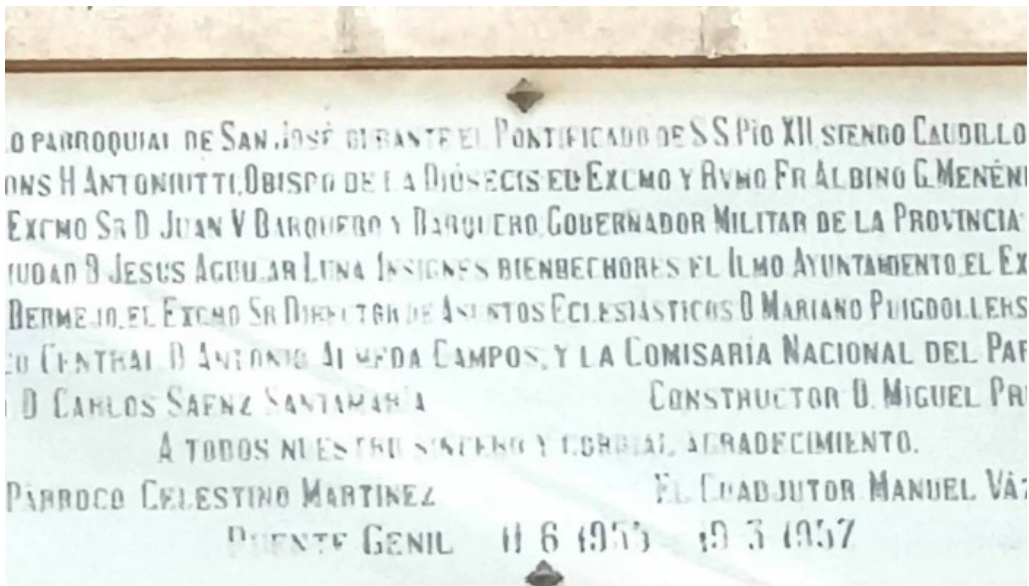 O PARROQUIAL DE SAN JOSÉ DURANTE EL PONTIFICADO DE S S PÍO XII SIENDO CAUDILLO
ONS H ANTONIUTTI, OBISPO DE LA DIÓSECIS EL EXCMO Y RVMO FR ALBINO G. MENÉN
EXCMO SR D JUAN V BARQUERO Y BARQUERO, GOBERNADOR MILITAR DE LA PROVINCIA
IUDAD D JESUS AGUILAR LUNA INSIGNES BIENHECHORES EL ILMO AYUNTAMIENTO, EL EX
BERMEJO, EL EXCMO SR DIRECTOR DE ASUNTOS ECLESIÁSTICOS D MARIANO PUIGDOLLERS
CO CENTRAL D ANTONIO ALMEDA CAMPOS, Y LA COMISARÍA NACIONAL DEL PAR
D CARLOS SAENZ SANTAMARÍA CONSTRUCTOR D. MIGUEL PR
A TODOS NUESTRO SINCERO Y CORDIAL AGRADECIMIENTO.
PÁRROCO CELESTINO MARTINEZ EL COADJUTOR MANUEL VÁZ
PUENTE GENIL 11 6 1955 19 3 1957